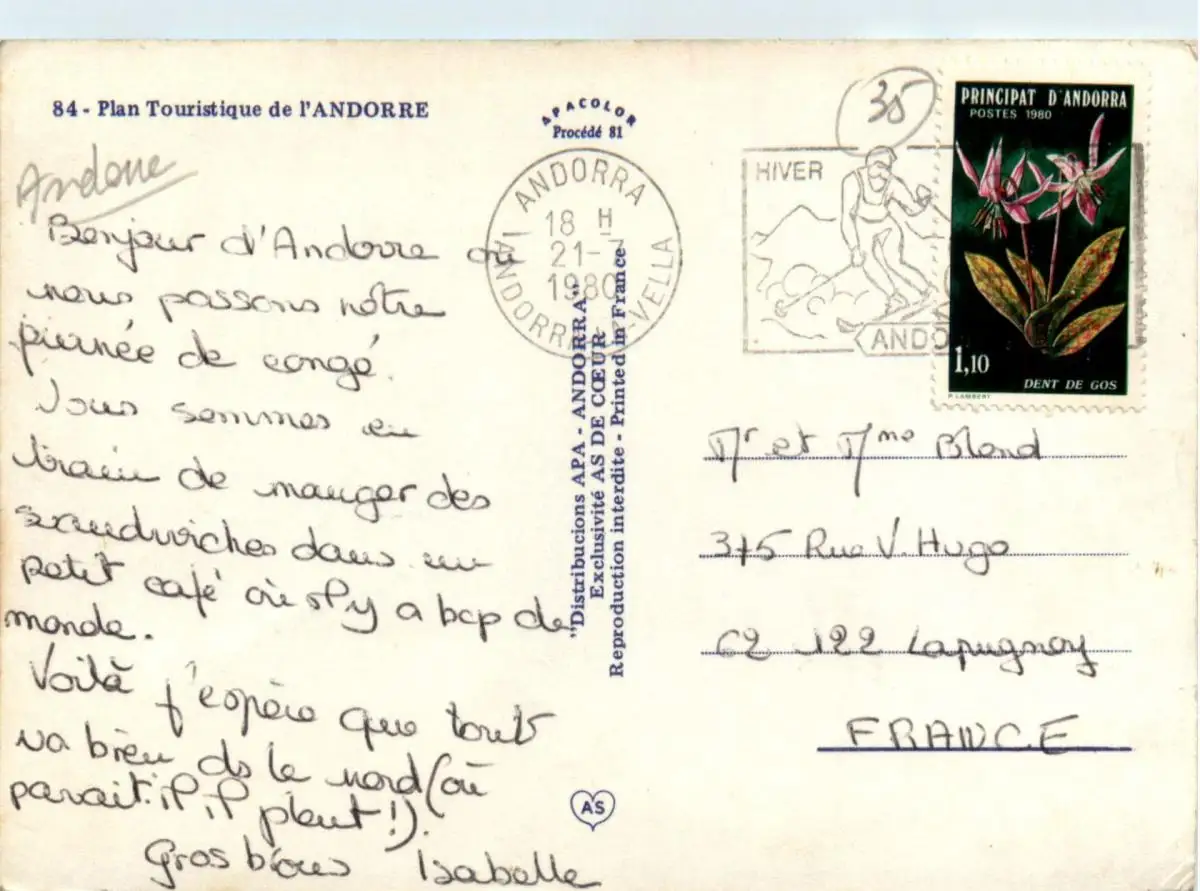 84 - Plan Touristique de l'ANDORRE
APACOLOR
Procédé 81
35
PRINCIPAT D'ANDORRA
POSTES 1980
1,10
DENT DE GOS
P. LAMBERT
HIVER
ANDO
ANDORRA
18 H
21-7
1980
ANDORRA-VELLA
Andorre
Bonjour d'Andorre où
nous passons notre
journée de congé.
Nous sommes en
train de manger des
sandwiches dans un
petit café où il y a bcp de
monde.
Voilà j'espère que tout
va bien ds le nord (où
parait-il il pleut!).
Gros bisous Isabelle
"Distribucions APA - ANDORRA"
Exclusivité AS DE CŒUR
Reproduction interdite - Printed in France
AS
Mr et Mme Blond
375 Rue V. Hugo
62 122 Lapugnoy
FRANCE